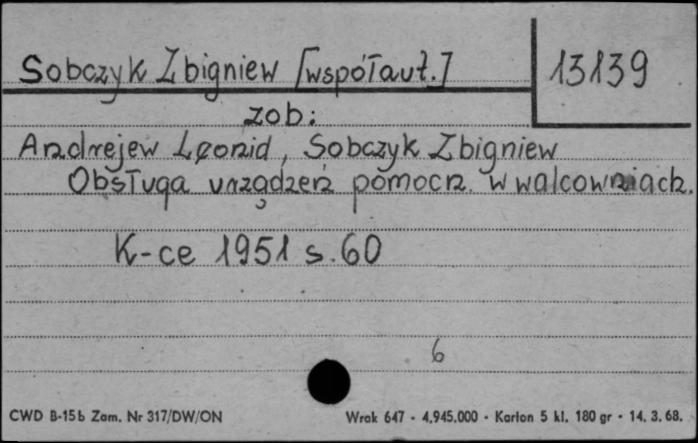 Sobczyk Zbigniew [współaut.] 13139
zob:
Andrejew Leonid, Sobczyk Zbigniew
Obsługa urządzeń pomocn. w walcowniach.
K-ce 1951 s. 60
6
CWD B-15b Zam. Nr 317/DW/ON Wrak 647 - 4.945.000 - Karton 5 kl. 180 gr - 14. 3. 68.